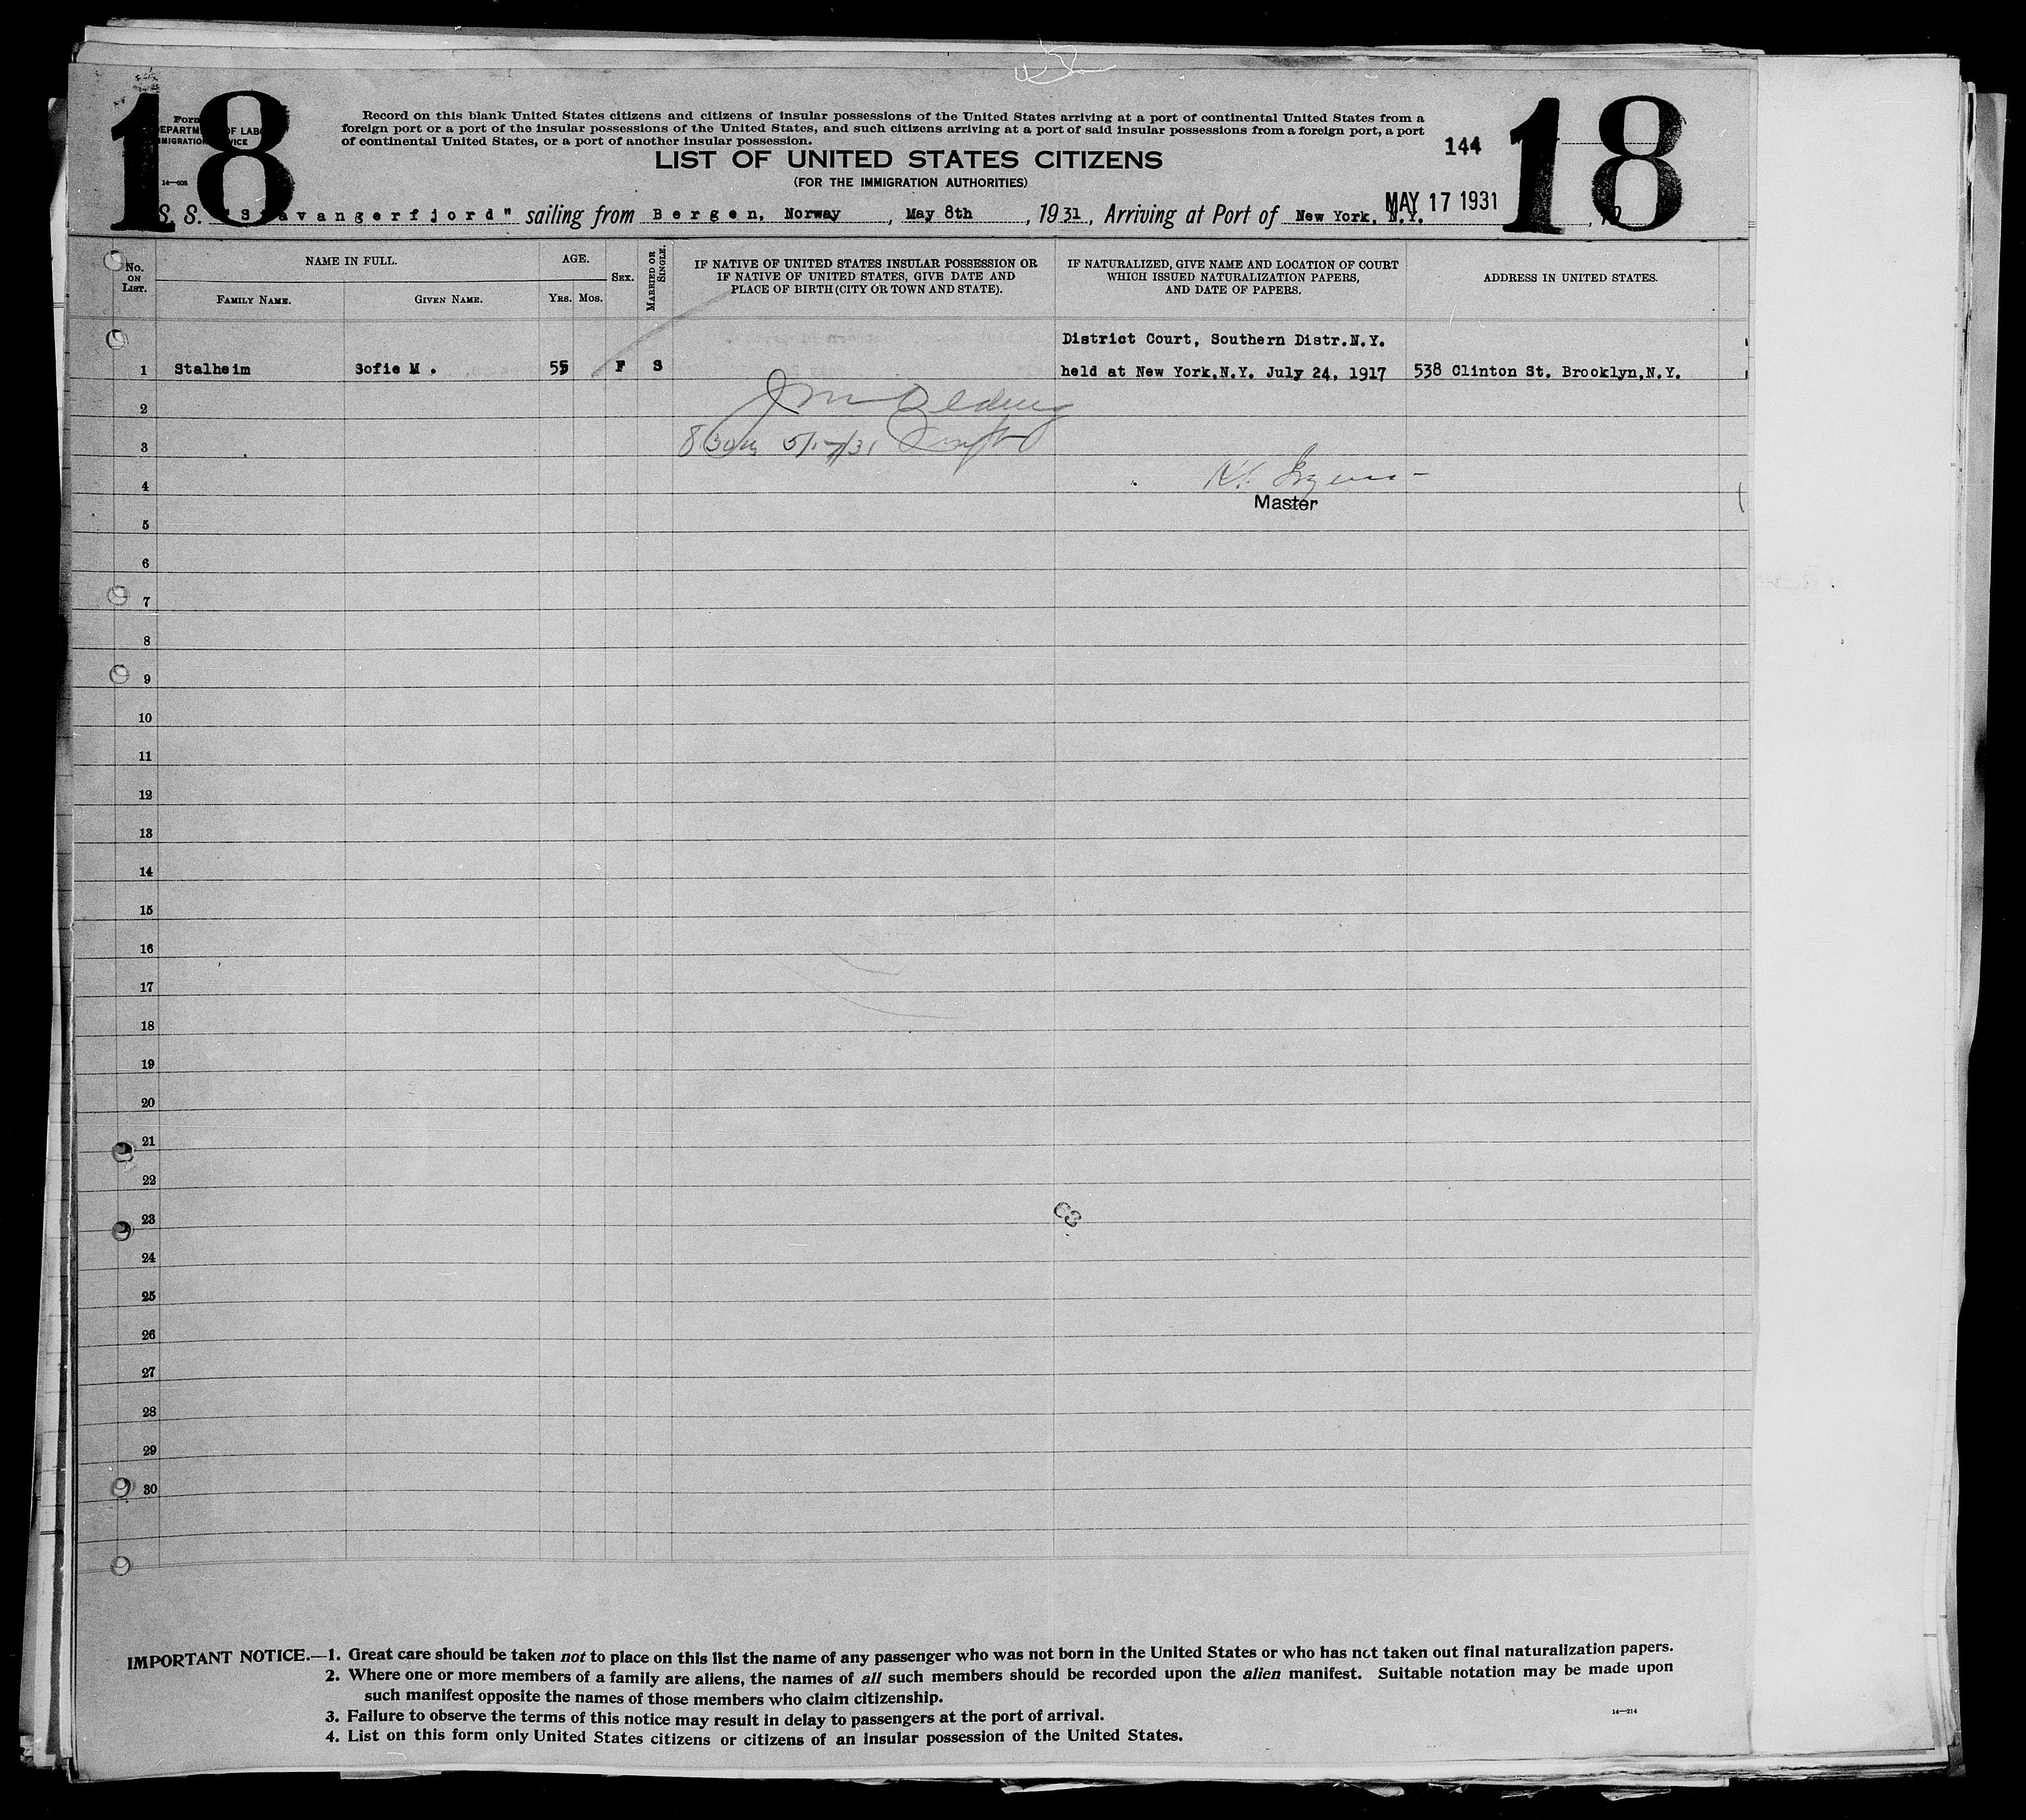 18
Form
DEPARTMENT OF LABOR
IMMIGRATION SERVICE
14—608
Record on this blank United States citizens and citizens of insular possessions of the United States arriving at a port of continental United States from a
foreign port or a port of the insular possessions of the United States, and such citizens arriving at a port of said insular possessions from a foreign port, a port
of continental United States, or a port of another insular possession.
LIST OF UNITED STATES CITIZENS
(FOR THE IMMIGRATION AUTHORITIES)
144
18
S. S. "Stavangerfjord" sailing from Bergen, Norway, May 8th, 1931, Arriving at Port of New York, N.Y. MAY 17 1931, 19
No. ON LIST.
NAME IN FULL.
FAMILY NAME.
GIVEN NAME.
AGE.
YRS. MOS.
SEX.
MARRIED OR SINGLE.
IF NATIVE OF UNITED STATES INSULAR POSSESSION OR
IF NATIVE OF UNITED STATES, GIVE DATE AND
PLACE OF BIRTH (CITY OR TOWN AND STATE).
IF NATURALIZED, GIVE NAME AND LOCATION OF COURT
WHICH ISSUED NATURALIZATION PAPERS,
AND DATE OF PAPERS.
ADDRESS IN UNITED STATES.
District Court, Southern Distr.N.Y.
1 Stalheim Sofie M. 55 F S held at New York,N.Y. July 24, 1917 538 Clinton St. Brooklyn,N.Y.
2
3 5/17/31
4
Master
5
6
7
8
9
10
11
12
13
14
15
16
17
18
19
20
21
22
23
24
25
26
27
28
29
30
IMPORTANT NOTICE.—1. Great care should be taken not to place on this list the name of any passenger who was not born in the United States or who has not taken out final naturalization papers.
2. Where one or more members of a family are aliens, the names of all such members should be recorded upon the alien manifest. Suitable notation may be made upon
such manifest opposite the names of those members who claim citizenship.
3. Failure to observe the terms of this notice may result in delay to passengers at the port of arrival.
14—214
4. List on this form only United States citizens or citizens of an insular possession of the United States.